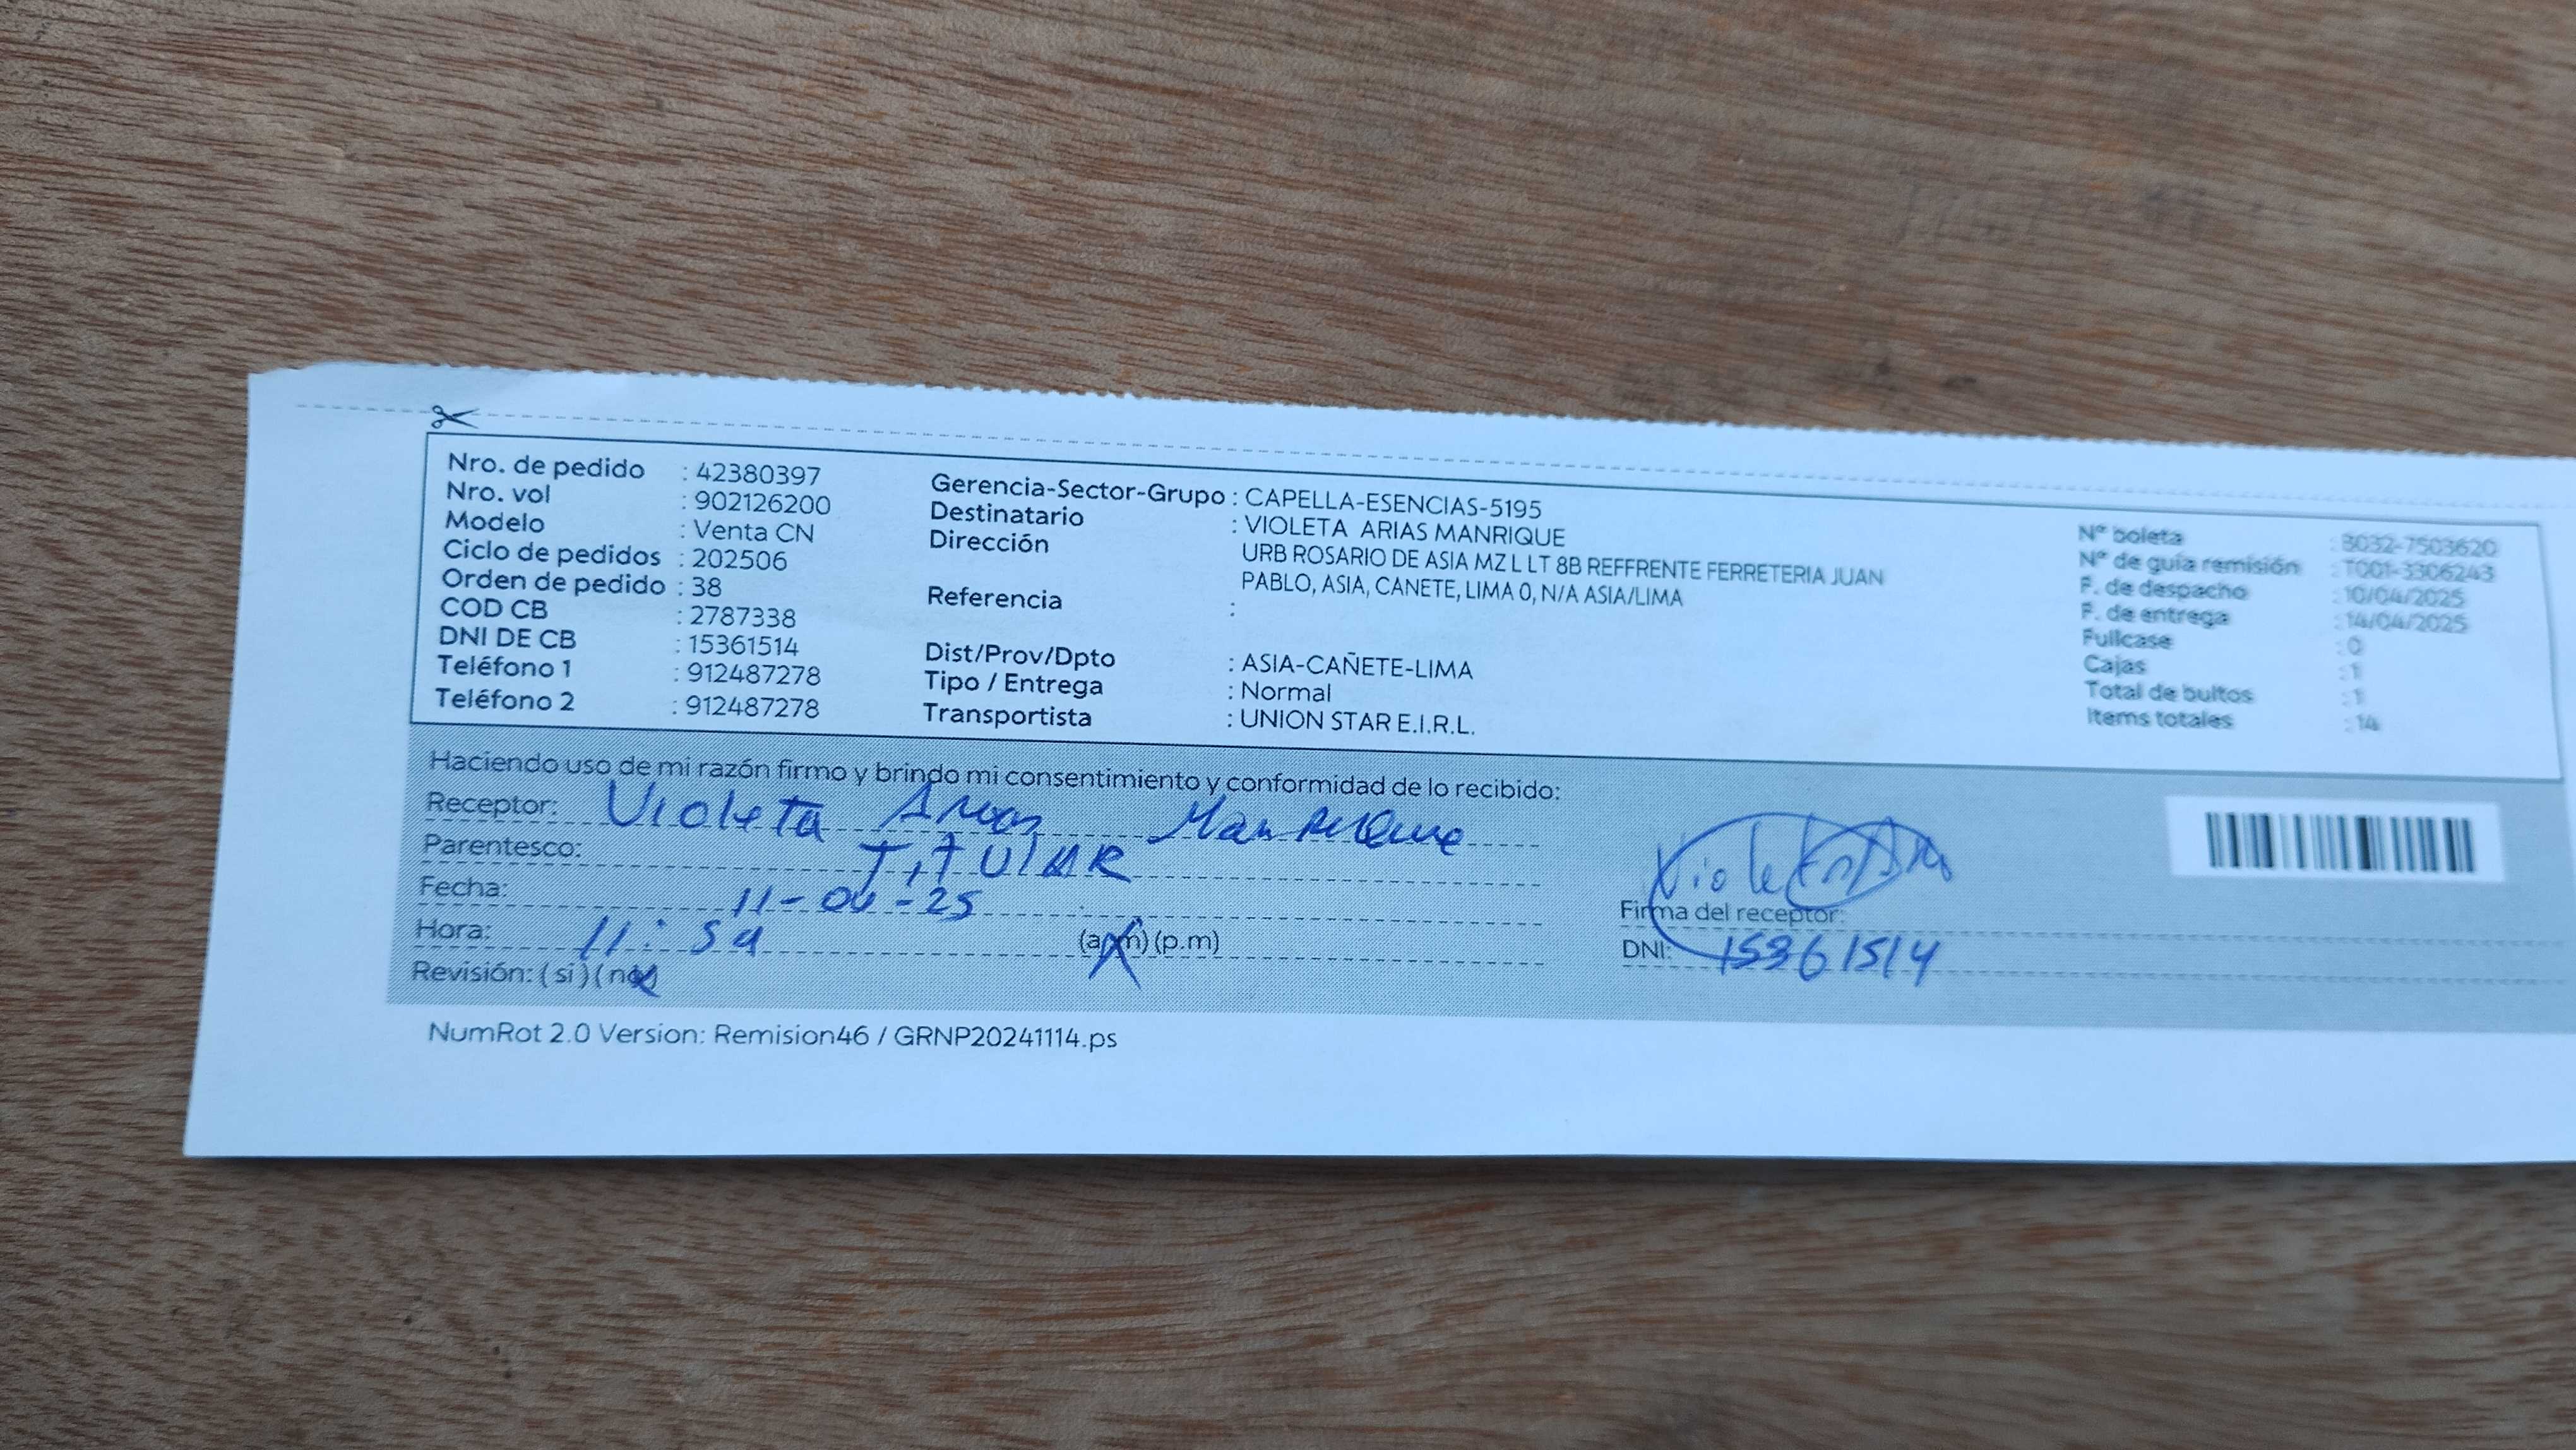 Nro. de pedido : 42380397
Nro. vol : 902126200
Modelo : Venta CN
Ciclo de pedidos : 202506
Orden de pedido : 38
COD CB : 2787338
DNI DE CB : 15361514
Teléfono 1 : 912487278
Teléfono 2 : 912487278
Gerencia-Sector-Grupo : CAPELLA-ESENCIAS-5195
Destinatario : VIOLETA ARIAS MANRIQUE
Dirección URB ROSARIO DE ASIA MZ L LT 8B REFFRENTE FERRETERIA JUAN
PABLO, ASIA, CANETE, LIMA 0, N/A ASIA/LIMA
Referencia :
Dist/Prov/Dpto : ASIA-CAÑETE-LIMA
Tipo / Entrega : Normal
Transportista : UNION STAR E.I.R.L.
Nº boleta : B032-7503620
Nº de guía remisión : T001-3306243
F. de despacho : 10/04/2025
F. de entrega : 14/04/2025
Fullcase : 0
Cajas : 1
Total de bultos : 1
Items totales : 14
Haciendo uso de mi razón firmo y brindo mi consentimiento y conformidad de lo recibido:
Receptor: Violeta Arias Manrique
Parentesco: TITULAR
Fecha: 11-04-25
Hora: 11:59 (a.m) (p.m)
Revisión: (si) (no)
Firma del receptor:
DNI: 15361514
NumRot 2.0 Version: Remision46 / GRNP20241114.ps